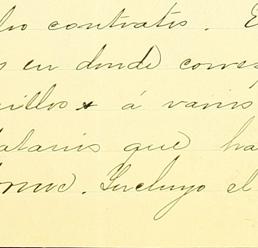 contratos. E
s en donde corres
illos á varios
atarios que ha
. Incluyo el